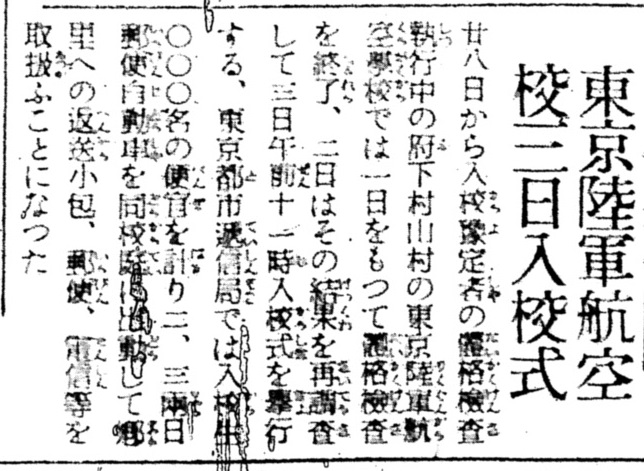 東京陸軍航空
校三日入校式
廿八日から入校豫定者の體格檢査
執行中の府下村山村の東京陸軍航
空學校では一日をもつて體格檢査
を終了、二日はその結果を再調査
して三日午前十一時入校式を擧行
する、東京都市遞信局では入校生
〇〇〇名の便宜を計り二、三兩日
郵便自動車を同校庭に出動して鄕
里への返送小包、郵便、電信等を
取扱ふことになつた